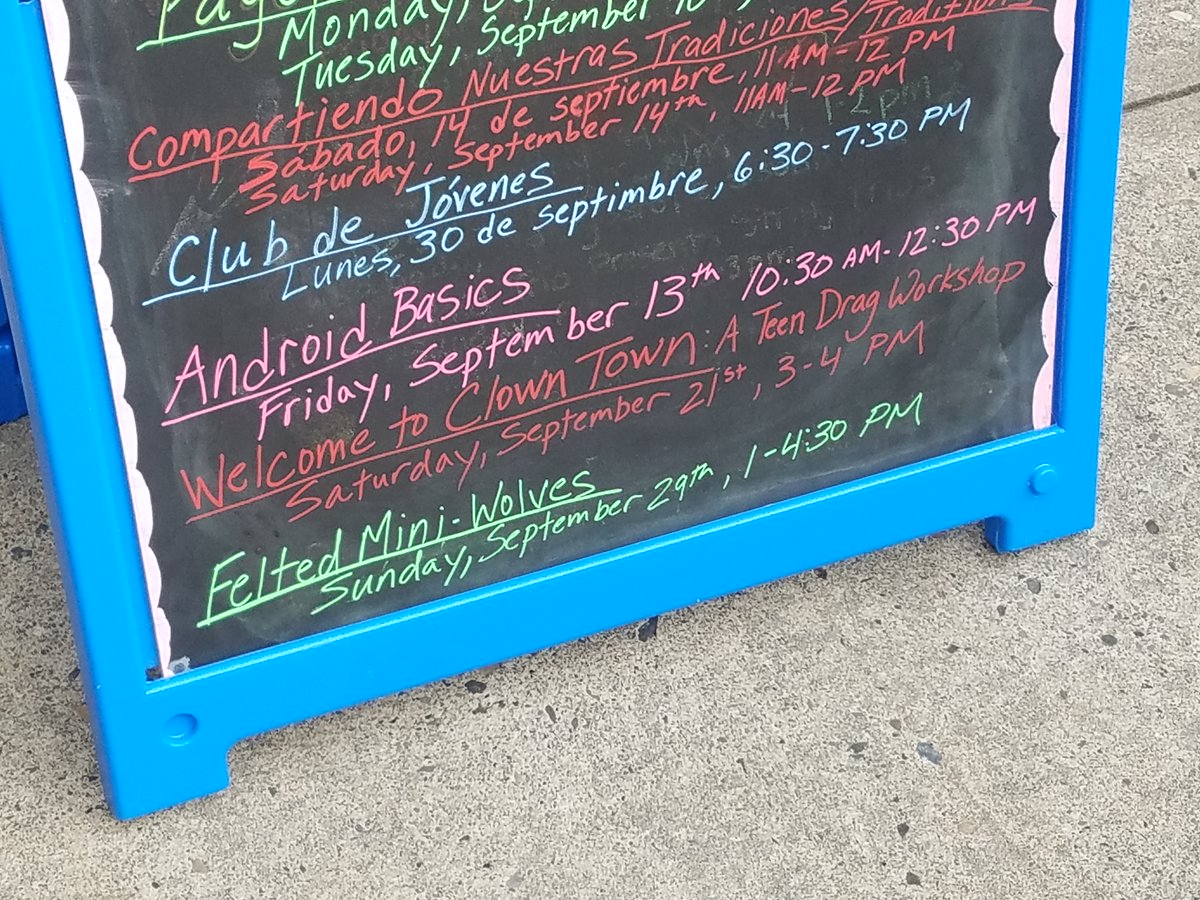 Monday,
Tuesday, September
Compartiendo Nuestras Tradiciones/Traditions
Sábado, 14 de septiembre, 11 AM-12 PM
Saturday, September 14th, 11AM-12 PM
Club de Jóvenes
Lunes, 30 de septimbre, 6:30-7:30 PM
Android Basics
Friday, September 13th 10:30 AM-12:30 PM
Welcome to Clown Town: A Teen Drag Workshop
Saturday, September 21st, 3-4 PM
Felted Mini-Wolves
Sunday, September 29th, 1-4:30 PM